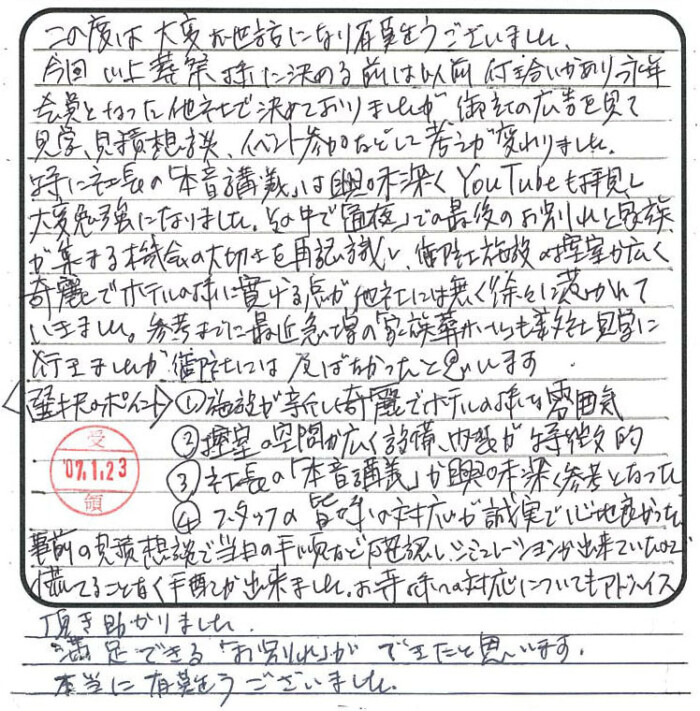 この度は大変お世話になり有難うございました。
今回川上葬祭様に決める前は以前付き合いがあり永年
会員となった他社で決めておりましたが御社の広告を見て
見学、見積想談、イベント参加などして考えが変わりました。
特に社長の「本音講義」は興味深くYouTubeも拝見し
大変勉強になりました。その中で「通夜」での最後のお別れと家族
が集まる機会の大切さを再認識し、御社施設は控室が広く
奇麗でホテルの様に寛げる点が他社には無く徐々に惹かれて
いきました。参考までに最近急増の「家族葬 」も 社見学に
行きましたが御社には及ばなかったと思います
<選択のポイント> ①施設が新しく奇麗でホテルの様な雰囲気
②控室の空間が広く設備、内装が特徴的
③社長の「本音講義」が興味深く参考となった
④スタッフの皆様の対応が誠実で心地良かった
受
'07.1.23
領
事前の見積想談で当日の手順など確認しシミュレーションが出来ていたので
慌てることなく手配が出来ました。お寺様への対応についてもアドバイス
頂き助かりました。
満足できる「お別れ」ができたと思います。
本当に有難うございました。